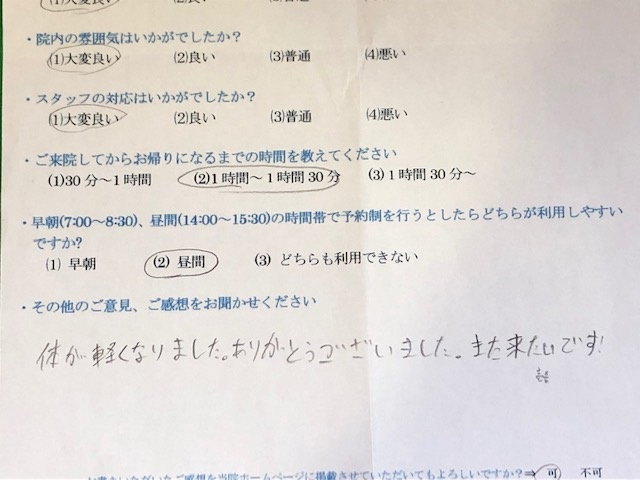 ・院内の雰囲気はいかがでしたか?
(1)大変良い (2)良い (3)普通 (4)悪い
・スタッフの対応はいかがでしたか?
(1)大変良い (2)良い (3)普通 (4)悪い
・ご来院してからお帰りになるまでの時間を教えてください
(1)30分～1時間 (2)1時間～1時間30分 (3)1時間30分～
・早朝(7:00～8:30)、昼間(14:00～15:30)の時間帯で予約制を行うとしたらどちらが利用しやすい
ですか?
(1) 早朝 (2) 昼間 (3) どちらも利用できない
・その他のご意見、ご感想をお聞かせください
体が軽くなりました。ありがとうございました。また来たいです!
いただいたご感想を当院ホームページに掲載させていただいてもよろしいですか?⇒ 可 不可